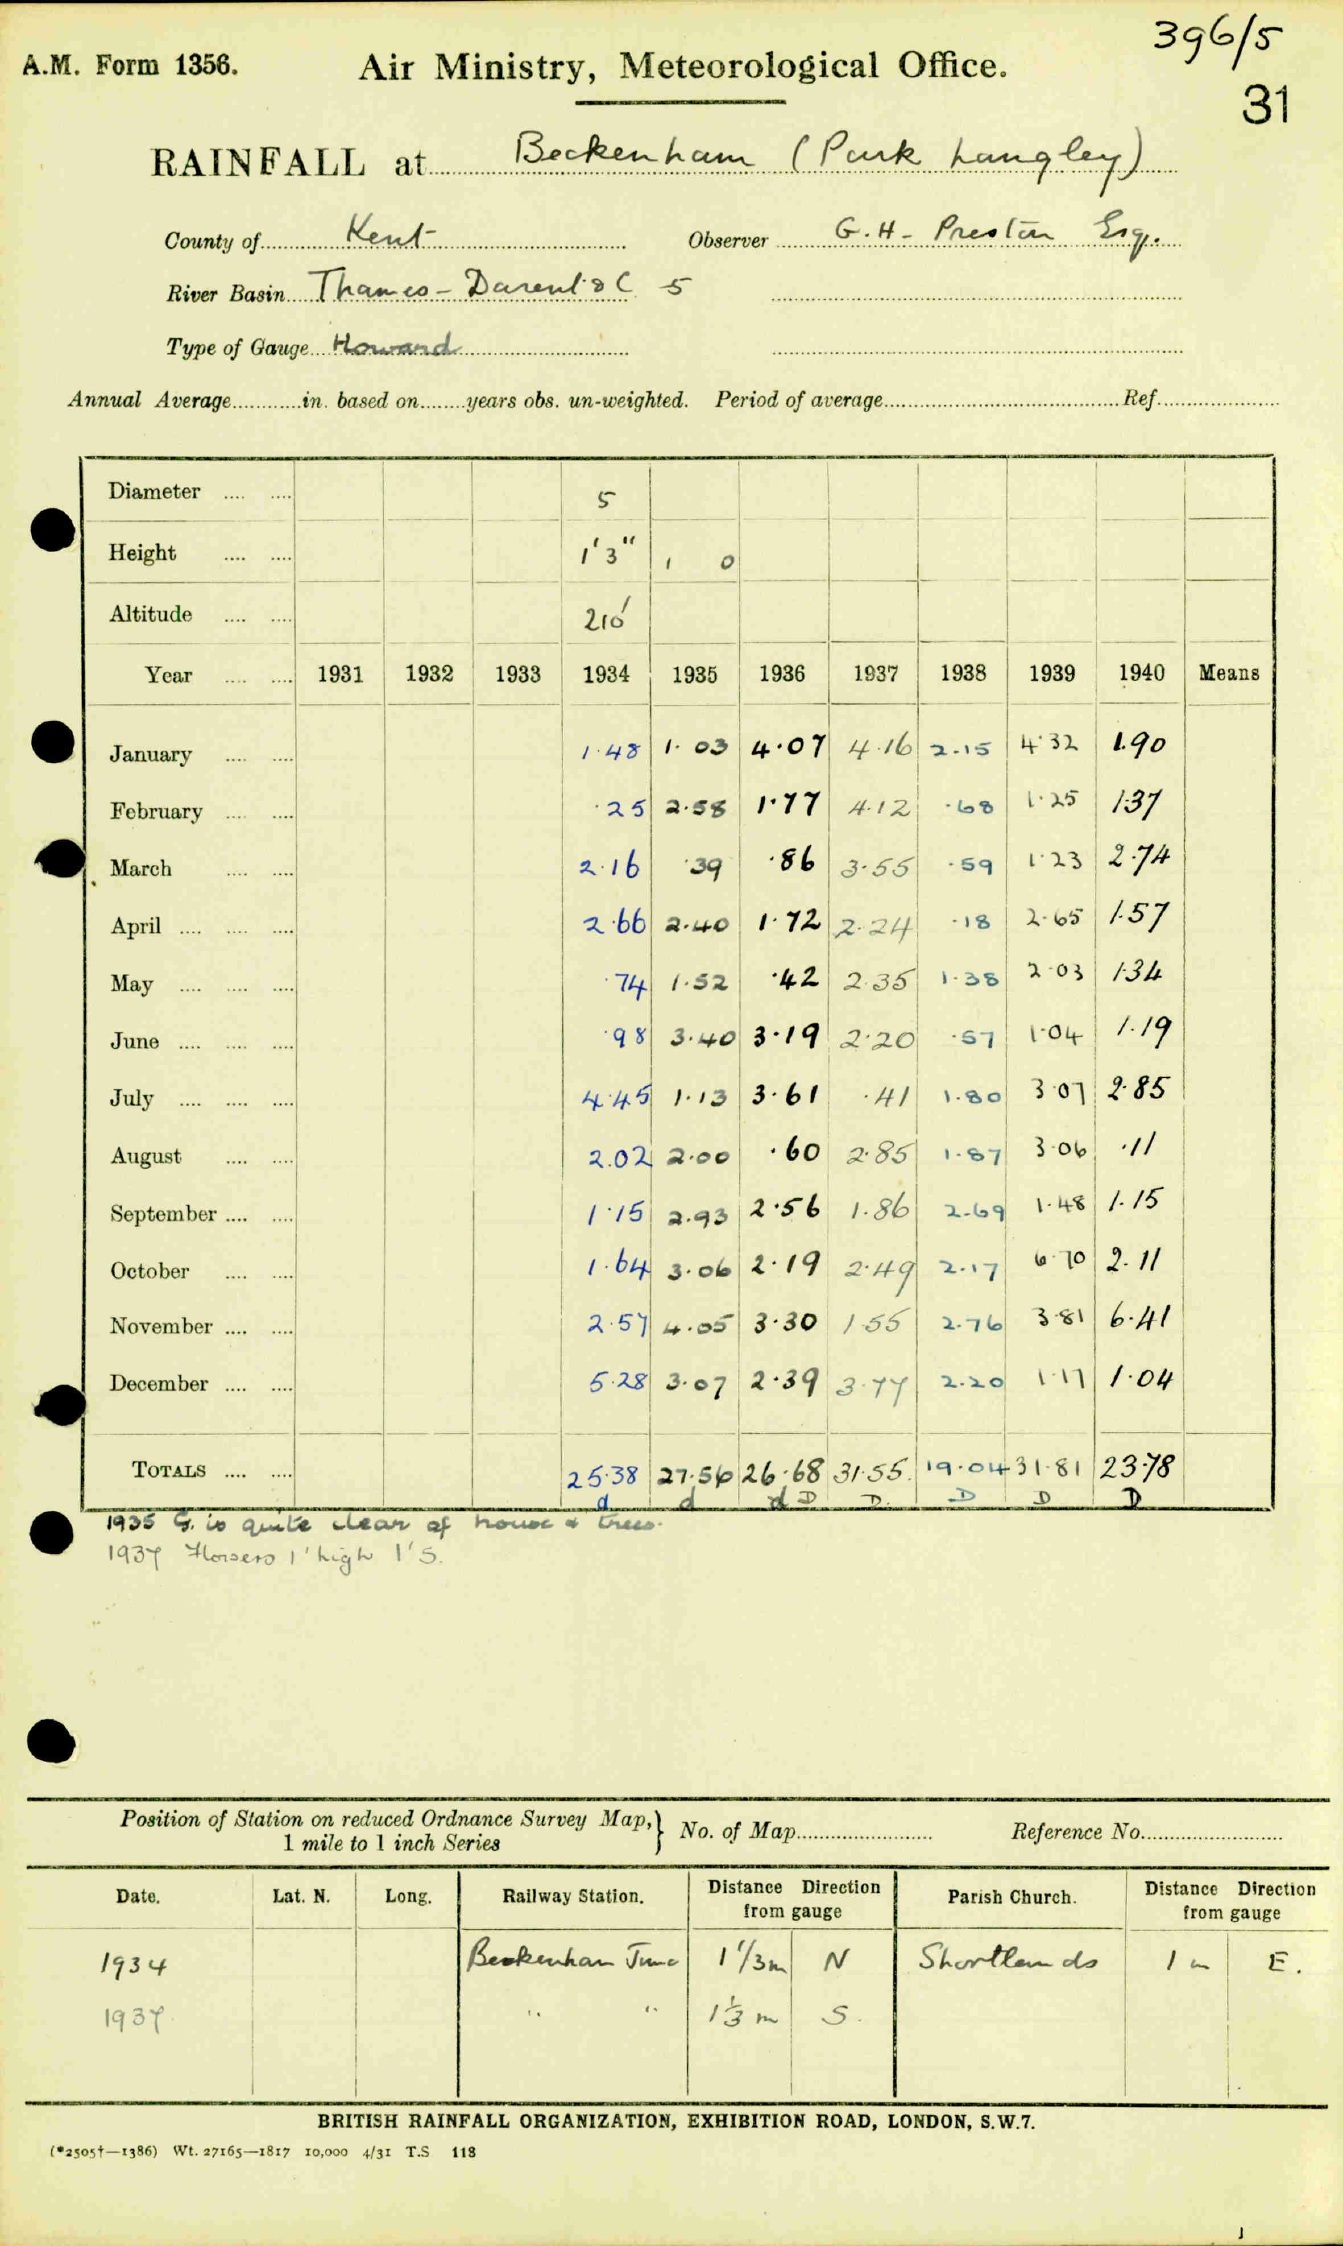 396/5
A.M. Form 1356. Air Ministry, Meteorological Office.
31
RAINFALL at Beckenham (Park Langley)
County of Kent Observer G.H. Preston Esq.
River Basin Thames - Darent & C 5
Type of Gauge Howard
Annual Average............in. based on........years obs. un-weighted. Period of average........................Ref.............
Diameter .... .... 5
Height .... .... 1'3" 1 0
Altitude .... .... 210'
Year .... .... 1931 1932 1933 1934 1935 1936 1937 1938 1939 1940 Means
January .... .... 1.48 1.03 4.07 4.16 2.15 4.32 1.90
February .... .... .25 2.58 1.77 4.12 .68 1.25 1.37
March .... .... 2.16 .39 .86 3.55 .59 1.23 2.74
April .... .... .... 2.66 2.40 1.72 2.24 .18 2.65 1.57
May .... .... .... .74 1.52 .42 2.35 1.38 2.03 1.34
June .... .... .... .98 3.40 3.19 2.20 .57 1.04 1.19
July .... .... .... 4.45 1.13 3.61 .41 1.80 3.07 2.85
August .... .... 2.02 2.00 .60 2.85 1.87 3.06 .11
September .... .... 1.15 2.93 2.56 1.86 2.69 1.48 1.15
October .... .... 1.64 3.06 2.19 2.49 2.17 6.70 2.11
November .... .... 2.57 4.05 3.30 1.55 2.76 3.81 6.41
December .... .... 5.28 3.07 2.39 3.77 2.20 1.17 1.04
TOTALS .... .... 25.38 27.56 26.68 31.55 19.04 31.81 23.78
d d d D D D D D
1935 G. is quite clear of house & trees.
1937 Flowers 1' high 1' S.
Position of Station on reduced Ordnance Survey Map, } No. of Map........................ Reference No.........................
1 mile to 1 inch Series
Date. Lat. N. Long. Railway Station. Distance Direction from gauge Parish Church. Distance Direction from gauge
1934 Beckenham Junc 1 1/3 m N Shortlands 1 m E.
1937 " " 1 1/3 m S.
BRITISH RAINFALL ORGANIZATION, EXHIBITION ROAD, LONDON, S.W.7.
(*2505†—1386) Wt. 27165—1817 10,000 4/31 T.S 118